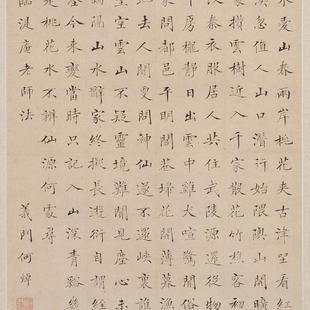 水愛山春兩岸桃花夾古津坐看紅
溪忽值人山口潛行始隈隩山開曠
家攢雲樹近入千家散花竹樵客初
改秦衣服居人共住武陵源還從物
房櫳靜日出雲中雞犬喧驚聞俗
家問都邑平明閭巷掃花開薄暮漁
地去人間更問神仙遂不還峽裏誰
望空雲山不疑靈境難聞見塵心未
隔山水辭家終擬長遊衍自謂經
壑今來變當時只記入山深青溪幾
桃花水不辨仙源何處尋
臨湜庵老師法
義門何焯